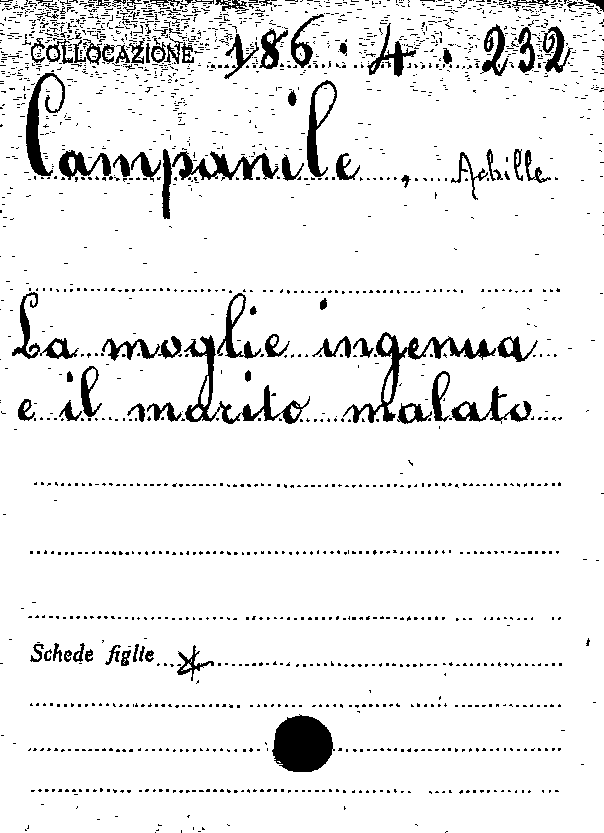 COLLOCAZIONE 186.4.232
Campanile, Achille
La moglie ingenua
e il marito malato
Schede figlie